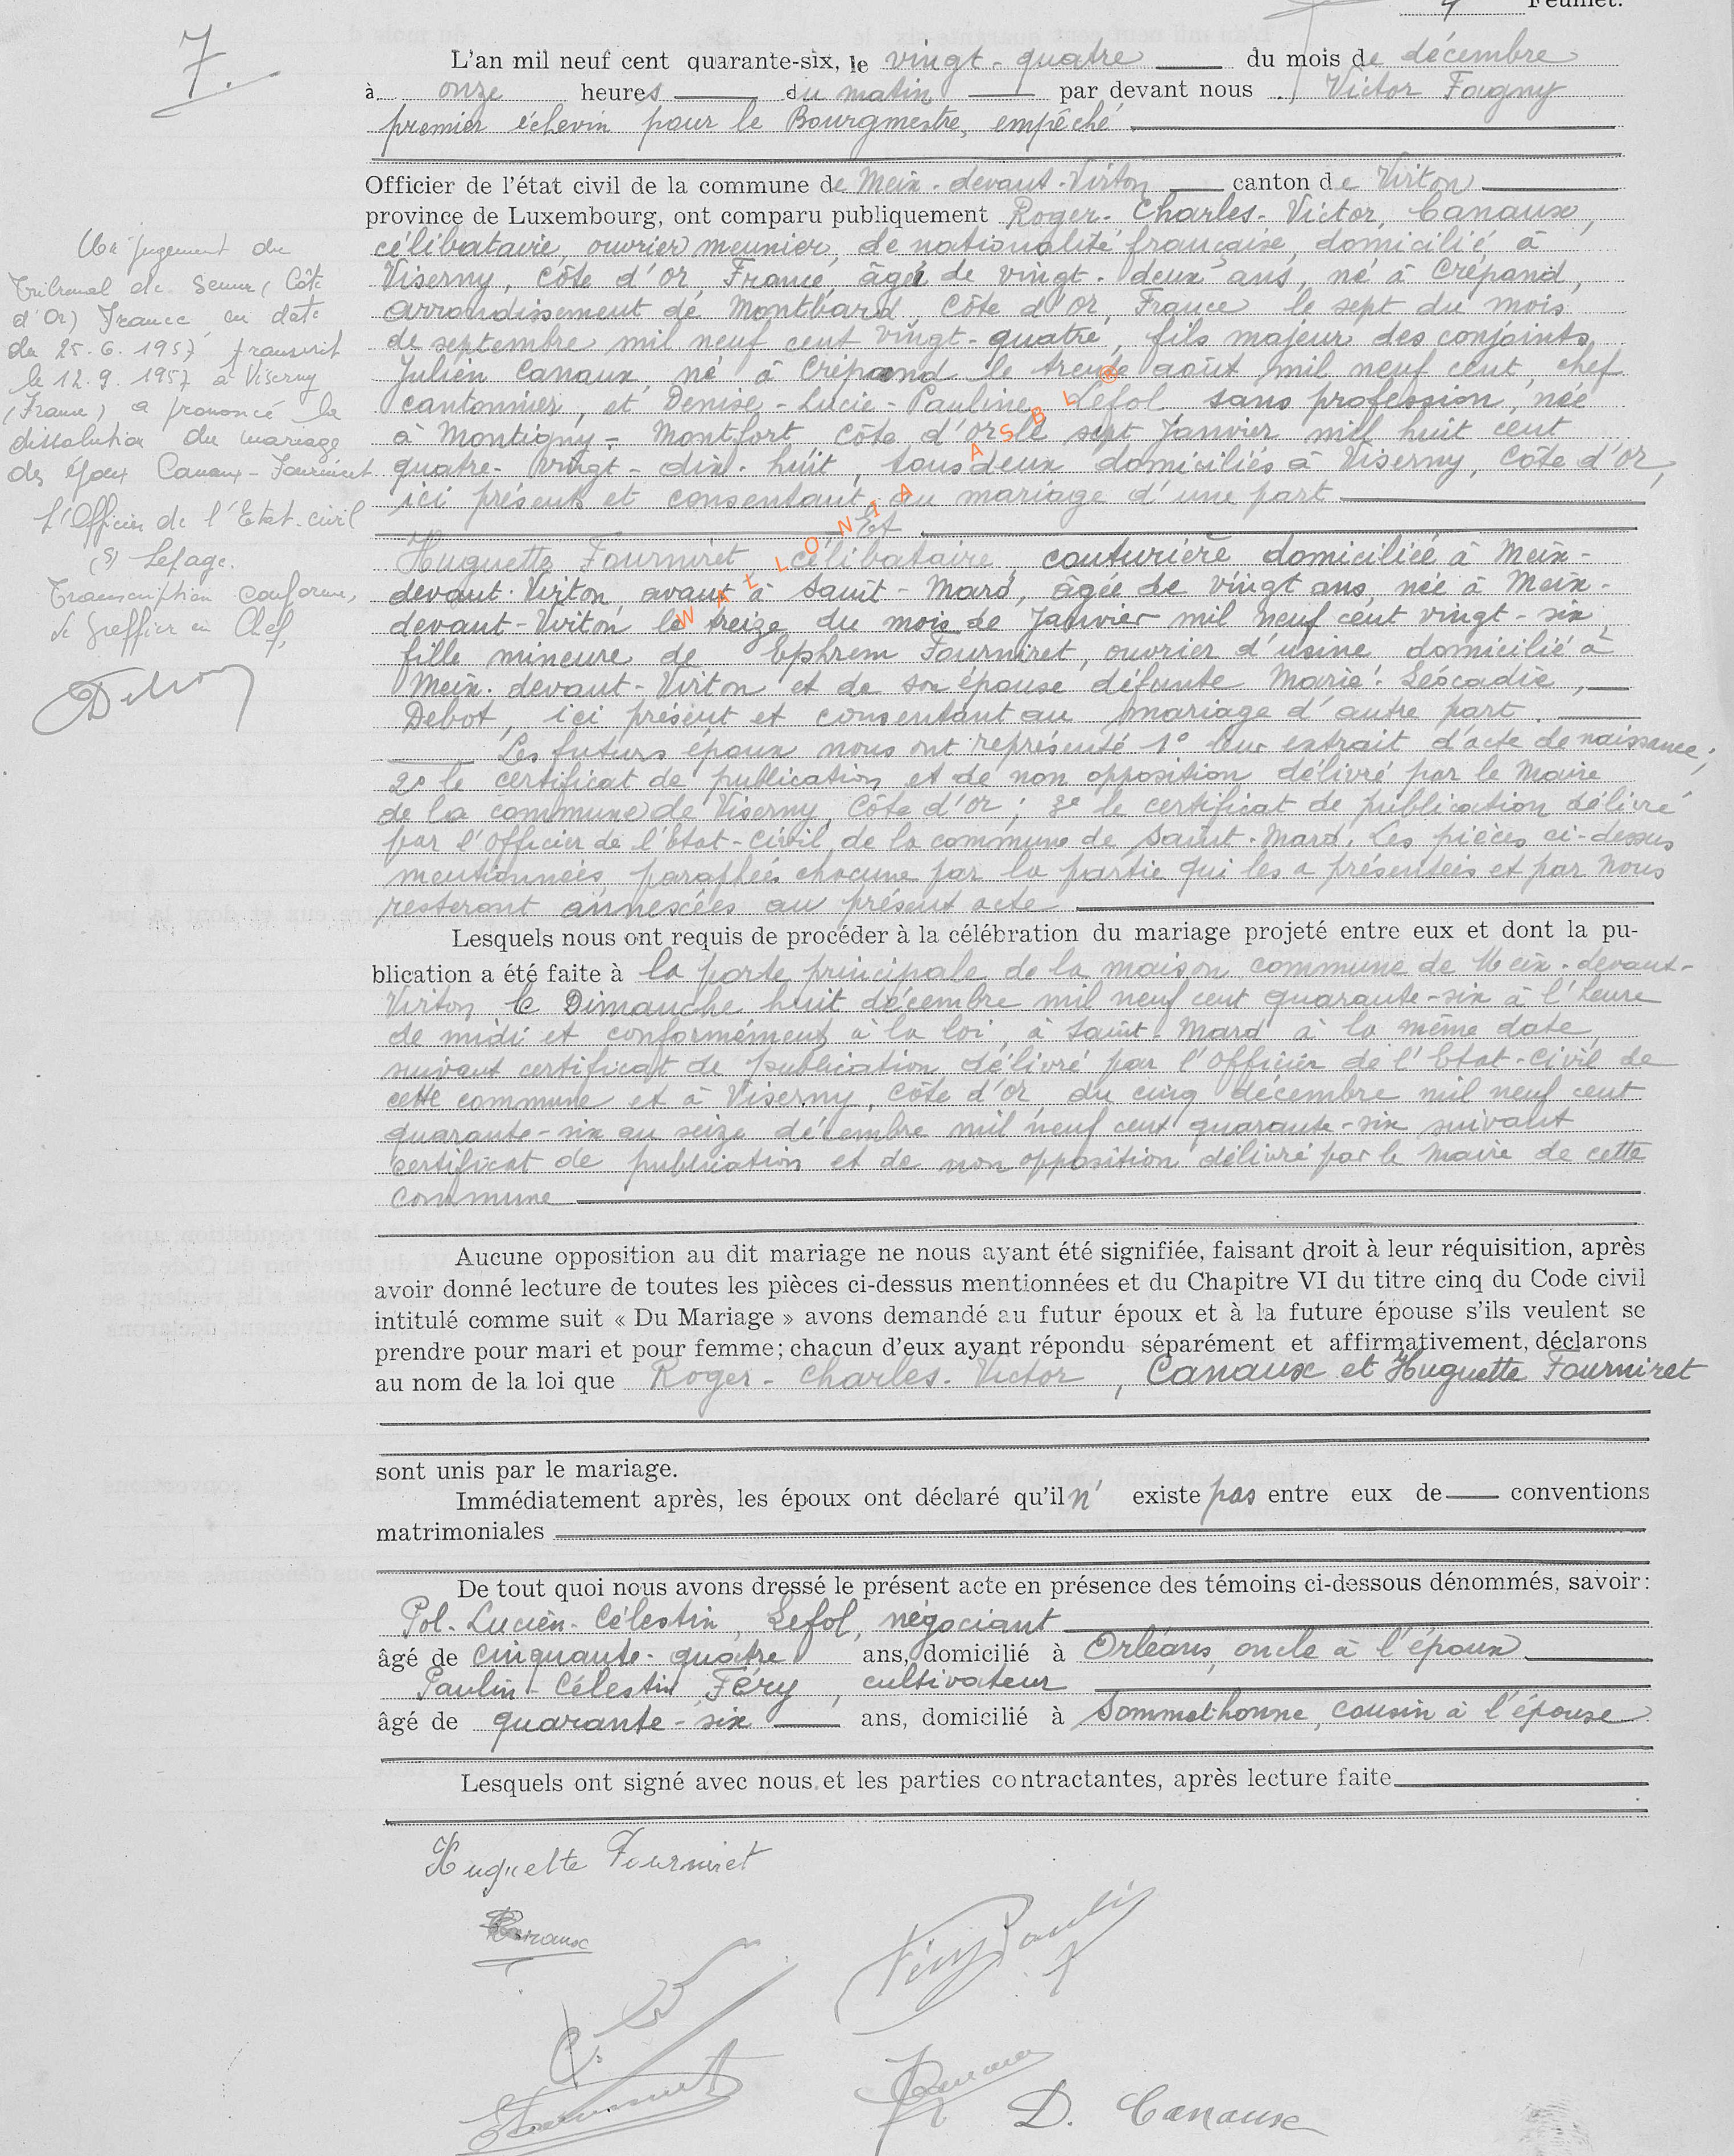 Feuillet.
7.
L'an mil neuf cent quarante-six, le vingt-quatre du mois de décembre
à onze heures du matin par devant nous Victor Fagny
premier échevin pour le Bourgmestre, empêché
Officier de l'état civil de la commune de Meix-devant-Virton canton de Virton
province de Luxembourg, ont comparu publiquement Roger-Charles-Victor, Canaux,
célibataire, ouvrier meunier, de nationalité française, domicilié à
Viserny, Côte d'Or, France, âgé de vingt-deux ans, né à Crépand,
arrondissement de Montbard, Côte d'Or, France le sept du mois
de septembre mil neuf cent vingt-quatre, fils majeur des conjoints
Julien Canaux, né à Crépand le trente août mil neuf cent, chef
cantonnier, et Denise-Lucie-Pauline Lefol, sans profession, née
à Montigny-Montfort Côte d'or le sept Janvier mil huit cent
quatre-vingt-dix-huit, tous deux domiciliés à Viserny, Côte d'Or,
ici présents et consentant au mariage d'une part
Et
Huguette Fourniret célibataire, couturière domiciliée à Meix-
devant-Virton, avant à Saint-Mard, âgée de vingt ans, née à Meix-
devant-Virton le treize du mois de Janvier mil neuf cent vingt-six,
fille mineure de Ephrem Fourniret, ouvrier d'usine domicilié à
Meix-devant-Virton et de son épouse défunte Marie-Léocadie,
Debot, ici présent et consentant au mariage d'autre part.
Les futurs époux nous ont représenté 1° leur extrait d'acte de naissance;
2° le certificat de publication et de non opposition délivré par le Maire
de la commune de Viserny, Côte d'or; 3° le certificat de publication délivré
par l'Officier de l'Etat-Civil de la commune de Saint-Mard. Les pièces ci-dessus
mentionnées, paraflées chacune par la partie qui les a présentées et par nous
resteront annexées au présent acte
Lesquels nous ont requis de procéder à la célébration du mariage projeté entre eux et dont la pu-
blication a été faite à la porte principale de la maison commune de Meix-devant-
Virton le Dimanche huit décembre mil neuf cent quarante-six à l'heure
de midi et conformément à la loi, à Saint-Mard à la même date,
suivant certificat de publication délivré par l'Officier de l'Etat-Civil de
cette commune et à Viserny, Côte d'or, du cinq décembre mil neuf cent
quarante-six au seize décembre mil neuf cent quarante-six suivant
certificat de publication et de non opposition délivré par le Maire de cette
commune
Aucune opposition au dit mariage ne nous ayant été signifiée, faisant droit à leur réquisition, après
avoir donné lecture de toutes les pièces ci-dessus mentionnées et du Chapitre VI du titre cinq du Code civil
intitulé comme suit « Du Mariage » avons demandé au futur époux et à la future épouse s'ils veulent se
prendre pour mari et pour femme; chacun d'eux ayant répondu séparément et affirmativement, déclarons
au nom de la loi que Roger-Charles-Victor, Canaux et Huguette Fourniret
sont unis par le mariage.
Immédiatement après, les époux ont déclaré qu'il n'existe pas entre eux de conventions
matrimoniales
De tout quoi nous avons dressé le présent acte en présence des témoins ci-dessous dénommés, savoir:
Pol-Lucien-Célestin, Lefol, négociant
âgé de cinquante-quatre ans, domicilié à Orléans, oncle à l'époux
Paulin-Célestin Féry, cultivateur
âgé de quarante-six ans, domicilié à Sommethonne, cousin à l'épouse
Lesquels ont signé avec nous et les parties contractantes, après lecture faite
Huguette Fourniret
Canaux
Féry Paulin
Fourniret
D. Canaux
Un jugement du
Tribunal de Semur (Côte
d'Or) France en date
du 25.6.1957 transcrit
le 12.9.1957 à Viserny
(France) a prononcé la
dissolution du mariage
des époux Canaux-Fourniret
L'Officier de l'Etat-civil
(s) Lefage.
Transcription conforme,
Le Greffier en Chef,
WALLONIA ASBL ®